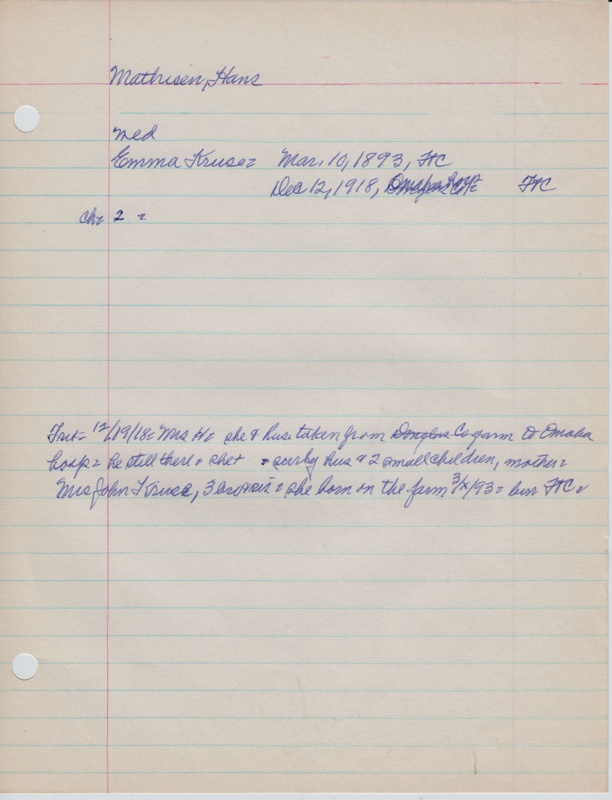 Mathisen, Hans
med
Emma Kruse= Mar. 10, 1893, FtC
Dec 12, 1918, FtC
ch= 2 =
12/19/18= Mrs H= she & hus. taken from Douglas Co farm to Omaha
hosp= he still there= she + = surv by hus & 2 small children, mother=
Mrs John Kruse, 3 bro = she born on the farm 3/ /93= bur FtC=